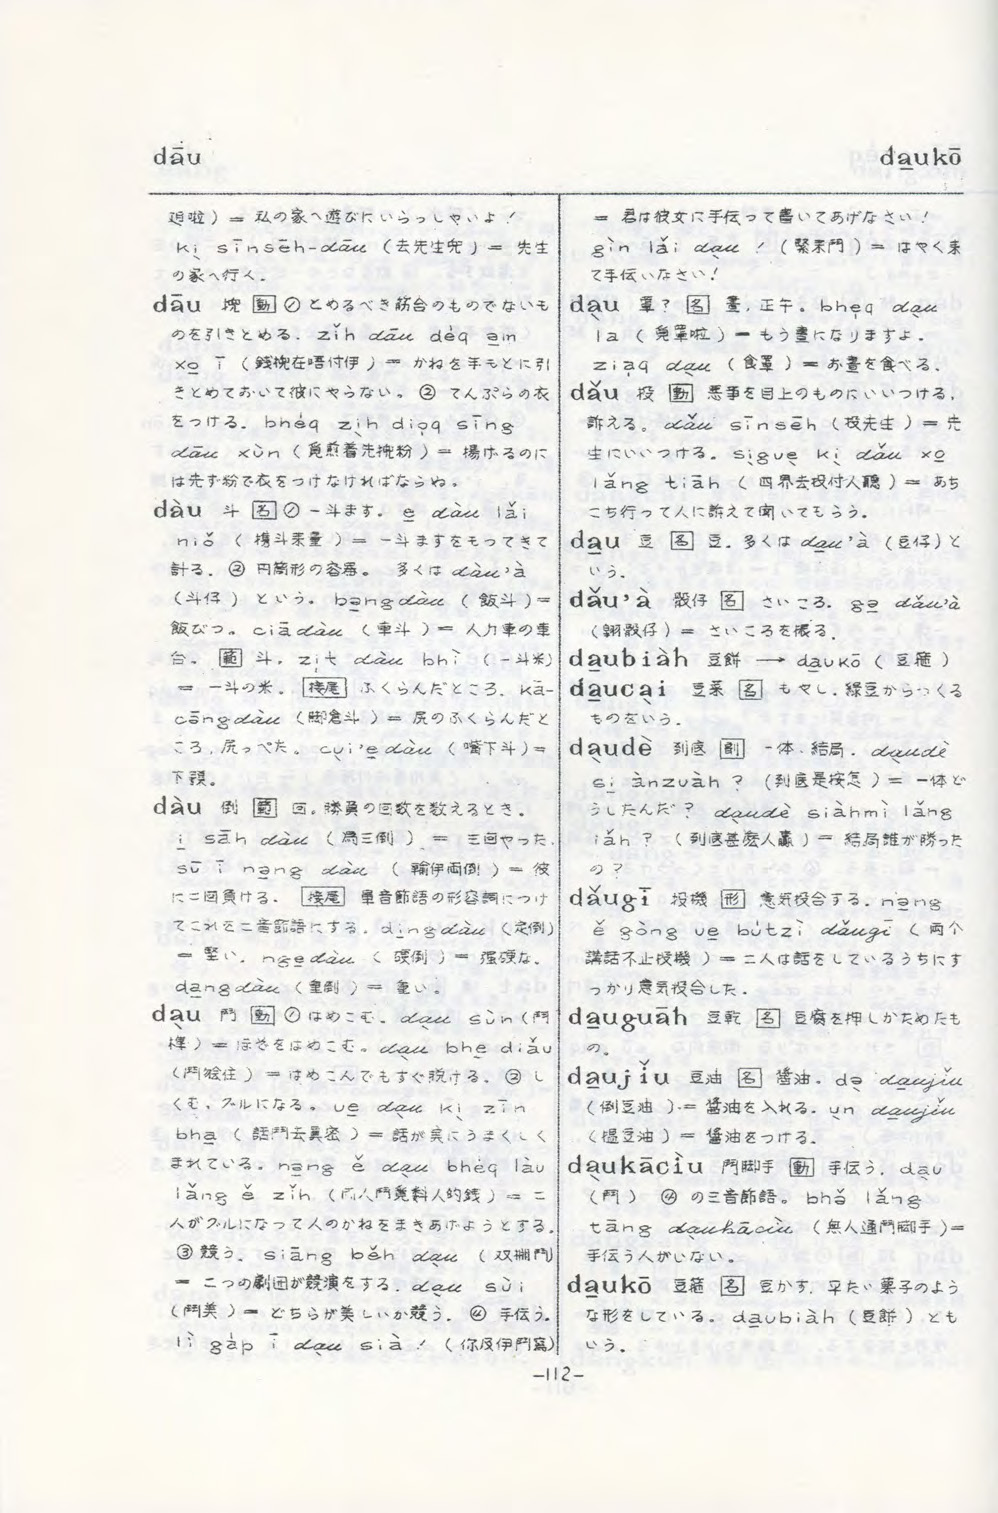 dāu
da̱ukō
ki̖ sīnsēh-dāu (去先生兜) = 先生
の家へ行く.
dāu 動 ①とめるべき筋合のものでないも
のを引きとめる. zǐh dāu dèq
= かねを手もとに引
きとめておいて彼にやらない。② てんぷらの衣
をつける. bhéq zi̖h diọq sīng
dāu xùn = 揚げるのに
は先ず粉で衣をつけなければならぬ。
dàu 斗 名 ① 一斗ます. e̱ dàu lǎi
niǒ = 一斗ますをもってきて
計る. ② 円筒形の容器。 多くは dàu'à
(斗仔) という。 ba̱ngdàu (飯斗) =
飯びつ。ciādàu (車斗) = 人力車の車
台。 範 斗. zi̖t dàu bhì (一斗米)
= 一斗の米。 接尾 ふくらんだところ. kā-
cēngdàu = 尻のふくらんだと
ころ, 尻っぺた。 (嘴下斗) =
下顎。
dàu 倒 範 回. 勝負の回数を数えるとき.
sāh dàu = 三回やった.
sū ī no̱ng dàu (輸伊両倒) = 彼
に二回負ける. 接尾 単音節語の形容詞につけ
てこれを二音節語にする. di̱ngdàu (定倒)
= 堅い. nge̱dàu (硬倒) = 強硬な.
da̱ngdàu (重倒) = 重い。
da̖u 鬥 動 ① はめこむ. da̖u sùn (鬥
榫) = ほぞをはめこむ。da̖u bhe̱ diǎu
= はめこんでもすぐ脱ける. ② し
くむ, グルになる。 ue̱ da̖u ki̖ zīn
bha̱ = 話が実にうまくしく
まれている。 no̱ng ě da̖u bhéq làu
lǎng ě zǐh = 二
人がグルになって人のかねをまきあげようとする.
③ 競う. siāng běh da̖u (双棚鬥)
= 二つの劇団が競演をする. da̖u sùi
(鬥美) = どちらが美しいか競う. ④ 手伝う.
lì gáp ī da̖u sià ! (你及伊鬥寫)
= 君は彼女に手伝って書いてあげなさい!
gìn lǎi da̖u ! (緊来鬥) = はやく来
て手伝いなさい!
da̖u 罩? 名 晝, 正午。 bhéq da̖u
la = もう晝になりますよ.
zia̱q da̖u (食罩) = お晝を食べる.
dǎu 投 動 悪事を目上のものにいいつける,
訴える。 dǎu sīnsēh (投先生) = 先
生にいいつける。 si̖gue̖ ki̖ dǎu xo̱
lǎng tiāh (四界去投付人聽) = あち
こち行って人に訴えて聞いてもらう.
da̱u 豆 名 豆. 多くは da̱u'à (豆仔) と
いう.
dǎu'à 骰仔 名 さいころ. dǎu'à
= さいころを振る.
da̱ubiàh 豆餅 → da̱ukō (豆箍)
da̱ucai 豆菜 名 もやし. 緑豆からつくる
ものをいう.
da̖udè 到底 副 一体, 結局. da̖udè
si̱ ànzuàh ? (到底是按怎) = 一体ど
うしたんだ? da̖udè siàhmì lǎng
iǎh ? (到底甚麼人贏) = 結局誰が勝った
の?
dǎugī 投機 形 意気投合する. no̱ng
ě gòng ue̱ bútzì dǎugī (両个
講話不止投機) = 二人は話をしているうちにす
っかり意気投合した.
da̱uguāh 豆乾 名 豆腐を押しかためたも
の.
da̱ujiǔ 豆油 名 醤油. da̱ujiǔ
(倒豆油) = 醤油を入れる. un̖ da̱ujiǔ
(搵豆油) = 醤油をつける.
da̖ukācìu 鬥脚手 動 手伝う. da̖u
(鬥) ④ の三音節語。 bhǒ lǎng
tāng da̖ukācìu (無人通鬥脚手) =
手伝う人がいない。
da̱ukō 豆箍 名 豆かす. 平たい菓子のよう
な形をしている。 da̱ubiàh (豆餅) とも
いう.
-112-